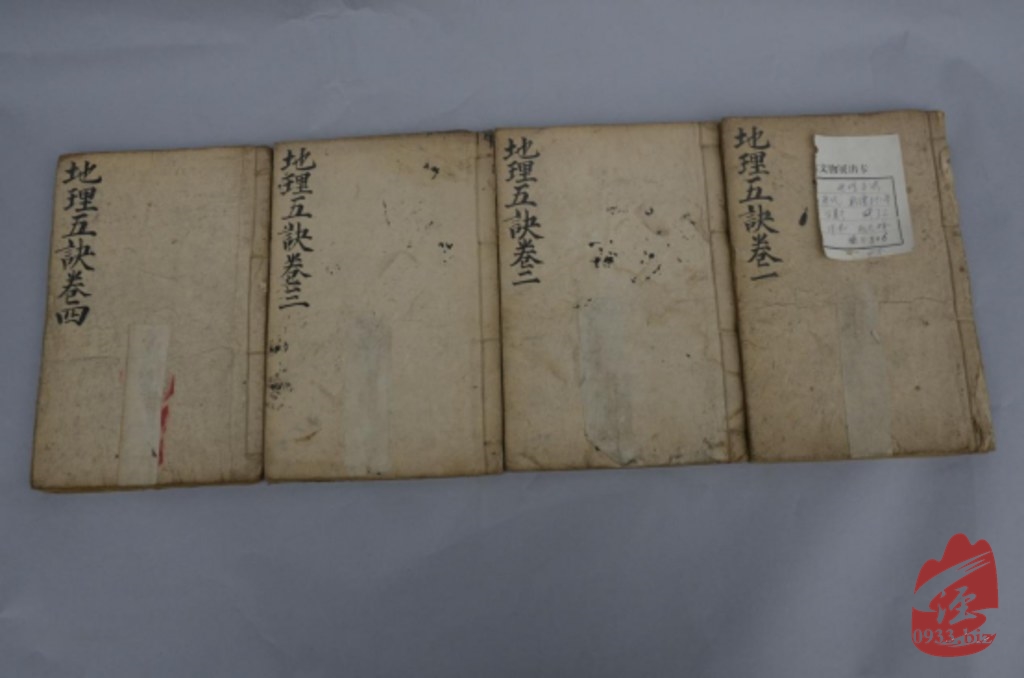 地理五訣卷一
地理五訣卷二
地理五訣卷三
地理五訣卷四
涇
0933.biz